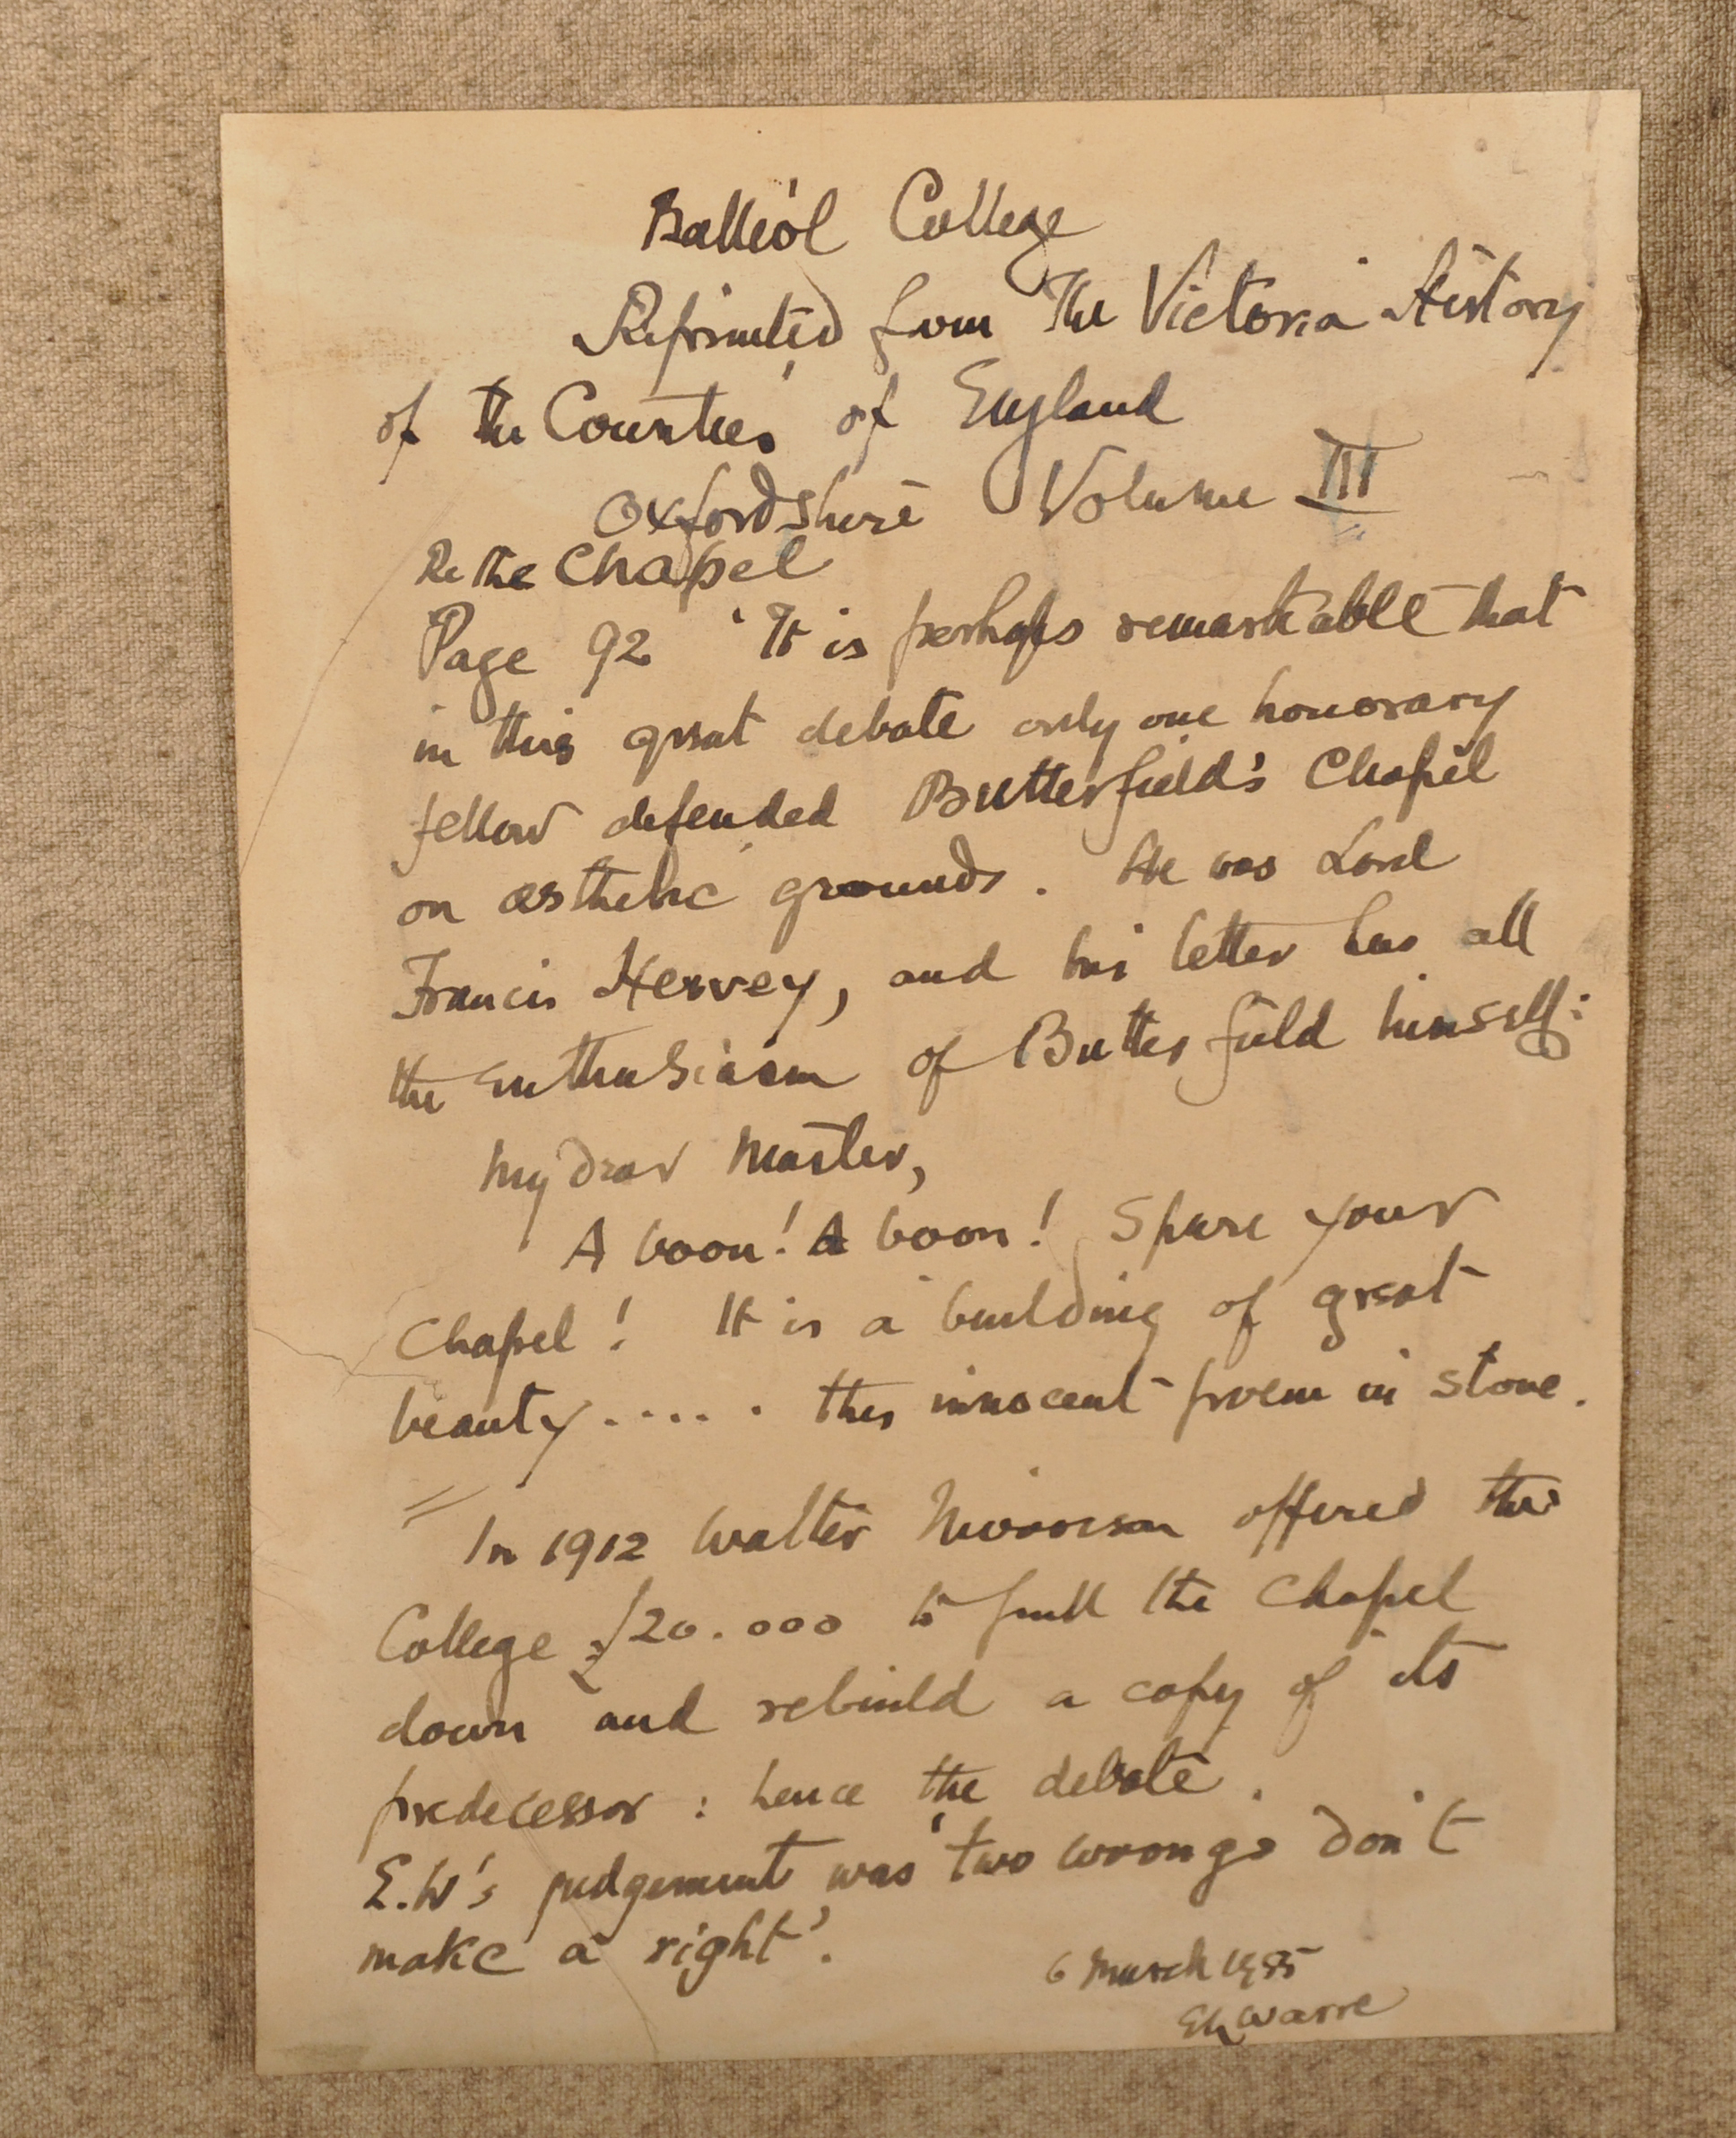 Balliol College
Reprinted from The Victoria History
of the Counties of England
Oxfordshire Volume III
Re the Chapel
Page 92 'It is perhaps remarkable that
in this great debate only one honorary
fellow defended Butterfield's Chapel
on æsthetic grounds. He was Lord
Francis Hervey, and his letter has all
the enthusiasm of Butterfield himself:
My dear Master,
A boon! A boon! Spare your
Chapel! It is a building of great
beauty..... this innocent poem in stone.
In 1912 Walter Morrison offered the
College £20.000 to pull the Chapel
down and rebuild a copy of its
predecessor: hence the debate.
E.W's judgement was 'two wrongs don't
make a right'.
6 March 1955
Warre